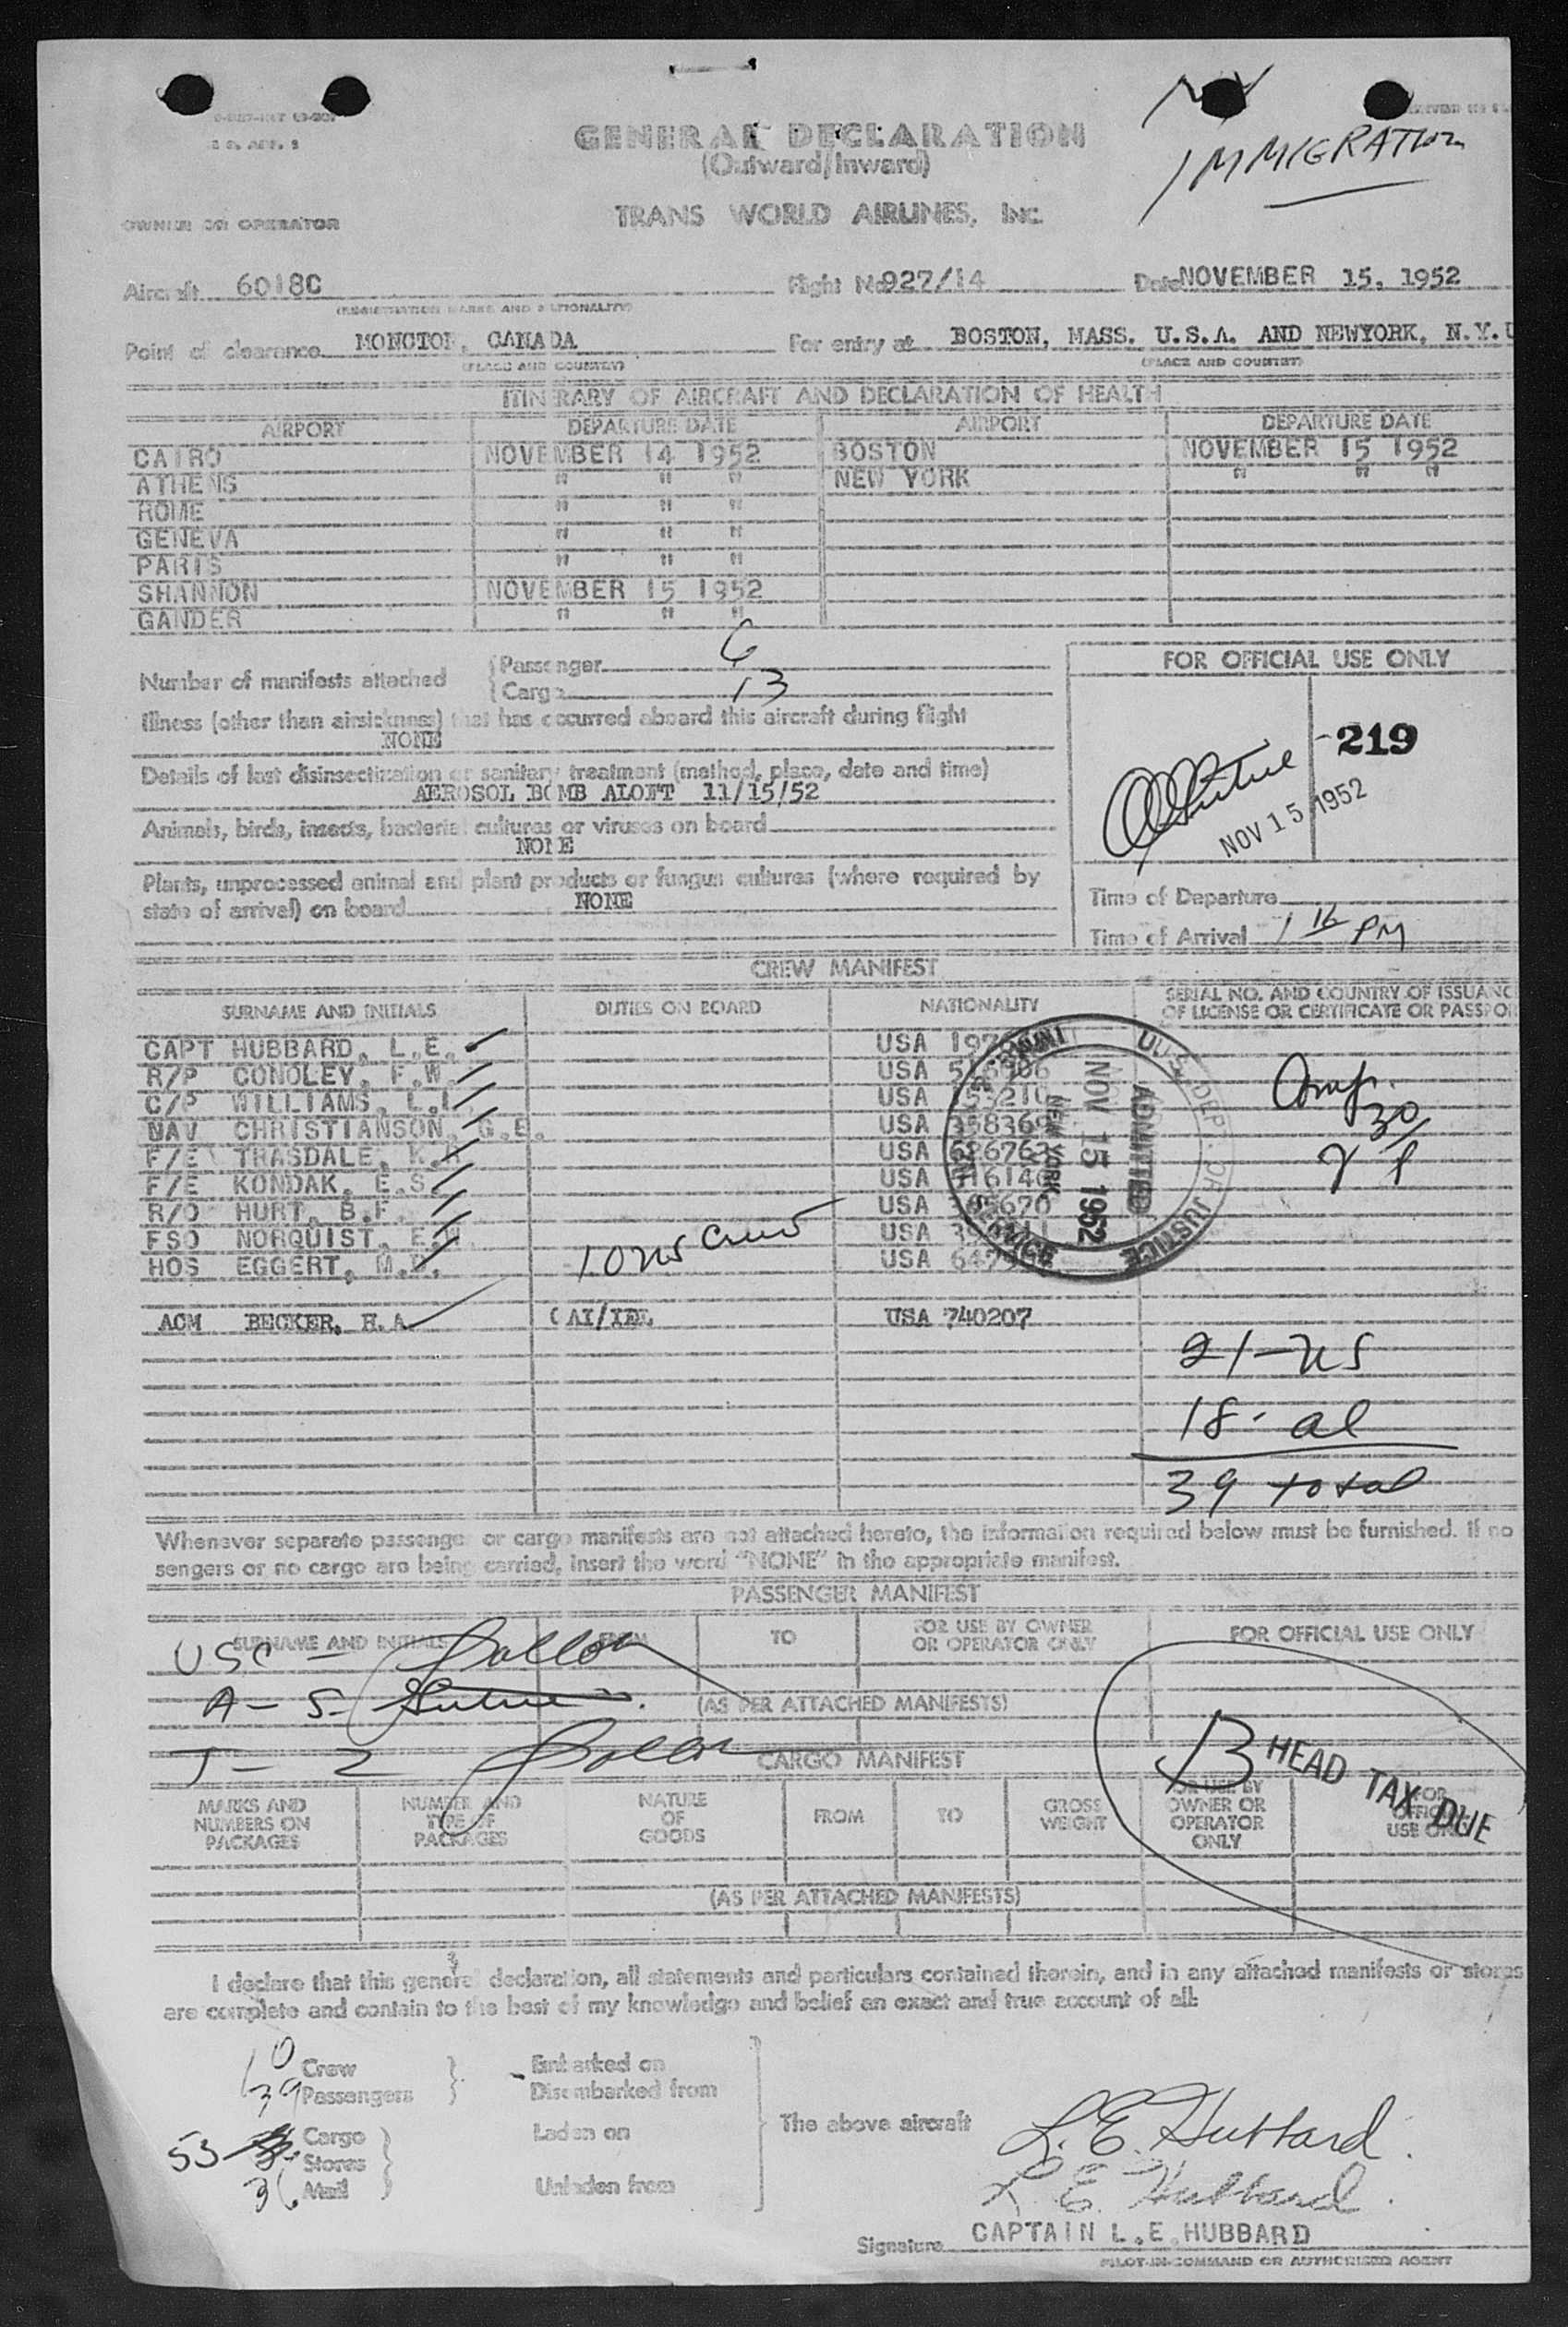 NY
IMMIGRATION
GENERAL DECLARATION
(Outward/Inward)
TRANS WORLD AIRLINES, Inc.
OWNER OR OPERATOR
Aircraft 6018C Flight No 927/14 Date NOVEMBER 15, 1952
(REGISTRATION MARKS AND NATIONALITY)
Point of clearance MONCTON, CANADA For entry at BOSTON, MASS. U.S.A. AND NEWYORK, N.Y.U
(PLACE AND COUNTRY) (PLACE AND COUNTRY)
ITINERARY OF AIRCRAFT AND DECLARATION OF HEALTH
AIRPORT DEPARTURE DATE AIRPORT DEPARTURE DATE
CAIRO NOVEMBER 14 1952 BOSTON NOVEMBER 15 1952
ATHENS " " " NEW YORK " " "
ROME " " "
GENEVA " " "
PARIS " " "
SHANNON NOVEMBER 15 1952
GANDER " " "
Number of manifests attached
Passenger 6
Cargo 13
FOR OFFICIAL USE ONLY
Illness (other than airsickness) that has occurred aboard this aircraft during flight
NONE
219
Details of last disinsectization or sanitary treatment (method, place, date and time)
AEROSOL BOMB ALOFT 11/15/52
NOV 15 1952
Animals, birds, insects, bacterial cultures or viruses on board
NONE
Plants, unprocessed animal and plant products or fungus cultures (where required by
state of arrival) on board NONE
Time of Departure
Time of Arrival 1 16 PM
CREW MANIFEST
SURNAME AND INITIALS DUTIES ON BOARD NATIONALITY SERIAL NO. AND COUNTRY OF ISSUANC
OF LICENSE OR CERTIFICATE OR PASSPOR
CAPT HUBBARD, L.E. USA
R/P CONOLEY, F.W. USA
C/P WILLIAMS, L.L. USA
NAV CHRISTIANSON, G.E. USA
F/E TRASDALE, K.R USA
F/E KONDAK, E.S. USA
R/O HURT, B.F. USA
FSO NORQUIST, E. USA
HOS EGGERT, M. USA
U.S. DEPT. OF JUSTICE
ADMITTED
NOV 15 1952
NEW YORK
SERVICE
10 us Crew
ACM BECKER, H.A. CAI/IDL USA 740207
21 - US
18 - al
39 total
Whenever separate passenger or cargo manifests are not attached hereto, the information required below must be furnished. If no
sengers or no cargo are being carried, insert the word "NONE" in the appropriate manifest.
PASSENGER MANIFEST
SURNAME AND INITIALS FROM TO FOR USE BY OWNER OR OPERATOR ONLY FOR OFFICIAL USE ONLY
USC -
A - S -
(AS PER ATTACHED MANIFESTS)
T - 2
B HEAD TAX DUE
CARGO MANIFEST
MARKS AND NUMBERS ON PACKAGES NUMBER AND TYPE OF PACKAGES NATURE OF GOODS FROM TO GROSS WEIGHT FOR USE BY OWNER OR OPERATOR ONLY FOR OFFICIAL USE ONLY
(AS PER ATTACHED MANIFESTS)
I declare that this general declaration, all statements and particulars contained therein, and in any attached manifests or stores
are complete and contain to the best of my knowledge and belief an exact and true account of all:
10 Crew Embarked on
39 Passengers Disembarked from
The above aircraft
53 Cargo Laden on
Stores
36 Mail Unladen from
L. E. Hubbard.
L. E. Hubbard.
Signature CAPTAIN L.E. HUBBARD
PILOT-IN-COMMAND OR AUTHORIZED AGENT